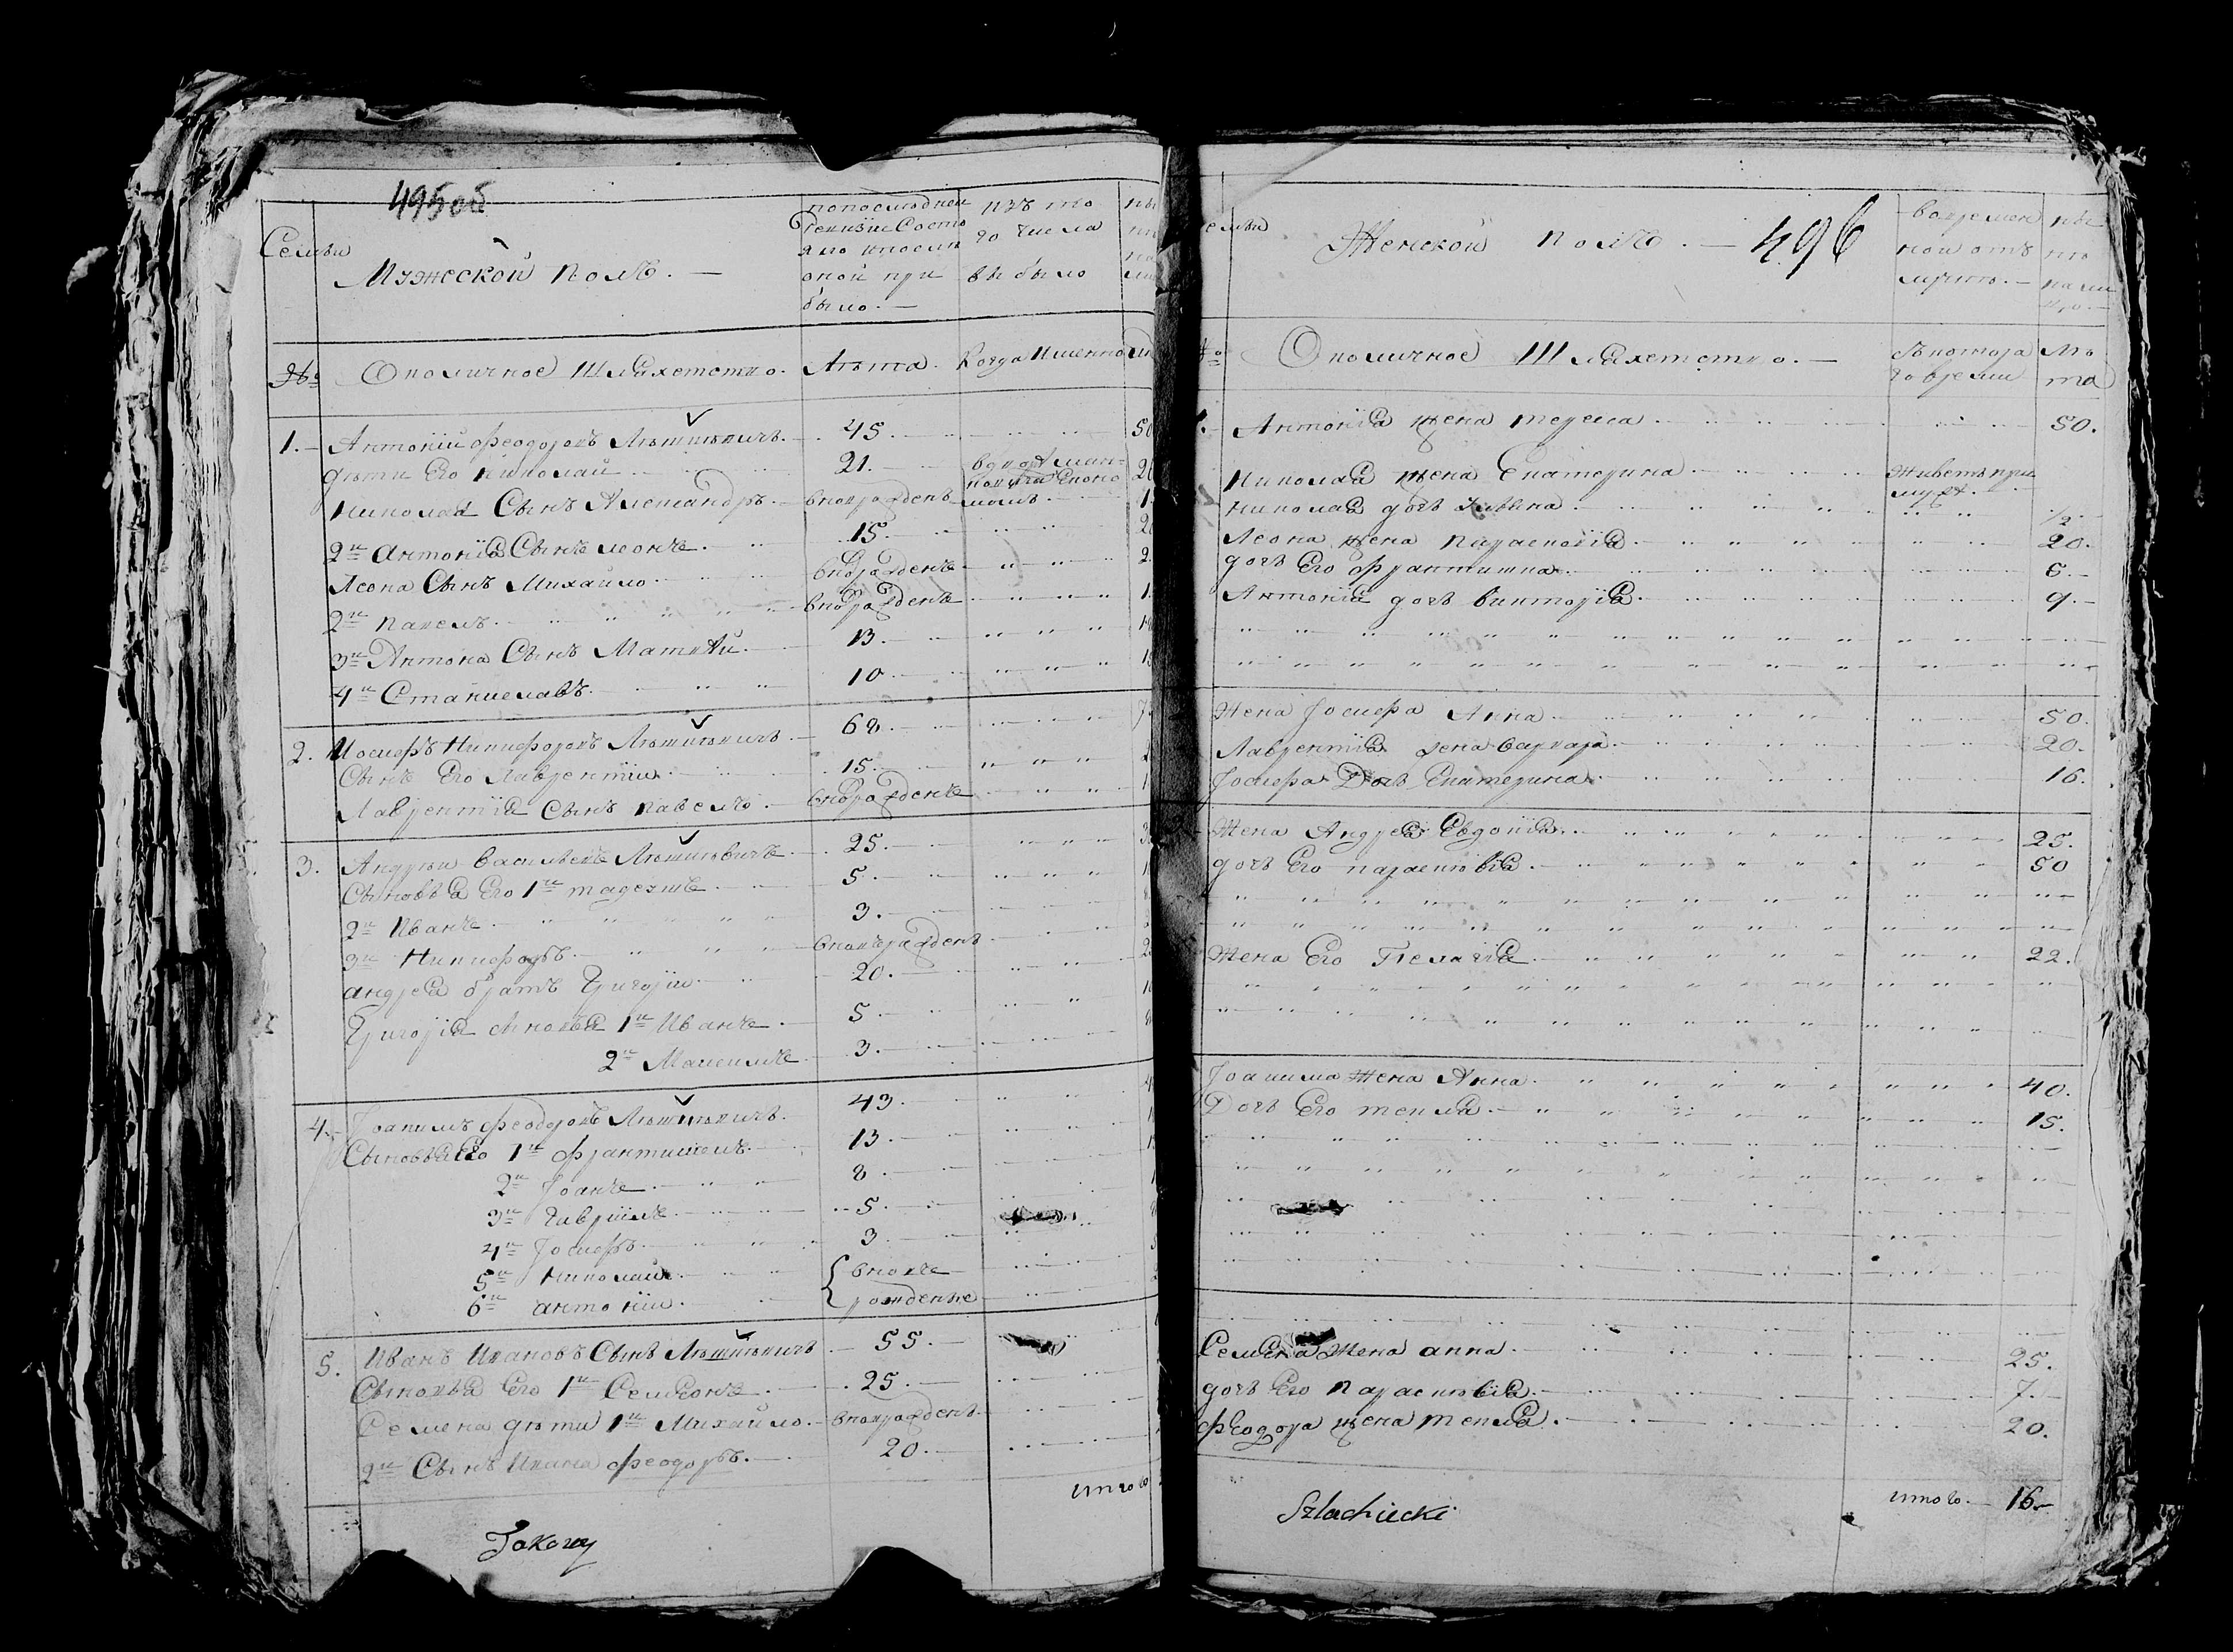 495об
Семьи
Мужеской полъ. —
попоследней
Ревизии Состо
яло ипосли
оной при
было. —
изъ то
го числа
выбыло
№
Околичное Шляхетство.
Лѣта.
Когда Именно
1. — Антоній Феодоровъ Лѣшкѣвичъ. — 45. 50
дѣти Его Николай 21. —
Николая Сынъ Александръ. — вновьрожденъ
2й Антонія Сынъ Леонъ. 15.
Леона Сынъ Михайло вноврожденъ
2й Павелъ. вноврожденъ
3й Антона Сынъ Матвѣй. 13.
4й Станиславъ. 10
2. Иосифъ Никифоровъ Лѣшкѣвичъ. — 68.
Сынъ Его Лаврентій 15.
Лаврентія Сынъ Павелъ — вноврожденъ
3. Андрѣй Васильевъ Лѣшкѣвичъ 25.
Сыновья Его 1й Тадеушъ 5.
2й Иванъ. 3.
3й Никифоръ. вновьрожденъ
Андрея братъ Григорій 20.
Григорія сыновья 1й Иванъ. 5.
2й Максимъ 3.
4. — Іоакимъ Феодоровъ Лѣшкѣвичъ. 43.
Сыновья Его 1й Францишекъ. 13.
2й Іоанъ. 8.
3й Гавріилъ 5.
4й Іосифъ 3.
5й Николай вновъ
6й Антоній. рожденые
5. Иванъ Ивановъ Сынъ Лѣшкѣвичъ — 55.
Сыновья Его 1й Семіонъ. 25.
Семена дѣти 1й Михайло. — вноврожденъ.
2й Сынъ Ивана Феодоръ. — 20. —
итого
Женской полъ. — 496
вовремен
ной отъ
лучкѣ. —
Околичное Шляхетство. —
Съкотора
го время
Лѣ
та
Антонія жена Тереса 50.
Николая жена Екатерина Живетъ при
мужѣ. —
Николая дочь 1/2
Леона жена Параскевія 20.
дочь Его Францишка 6. —
Антонія дочь Викторія. 9. —
Жена Іосифа Анна 50.
Лаврентія жена Варвара. 20.
Іосифа Дочь Екатерина. 16.
Жена Андрея Евдокія. 25.
дочь Его Параскѣвія 50
Жена Его Пелагія 22.
Іоакима Жена Анна. 40.
Дочь Его Текля. — 15.
Семена Жена Анна. 25.
дочь Его Параскѣвія. — 7. —
Феодора жена Текля. 20.
итого. — 16. —
Szlachiecki